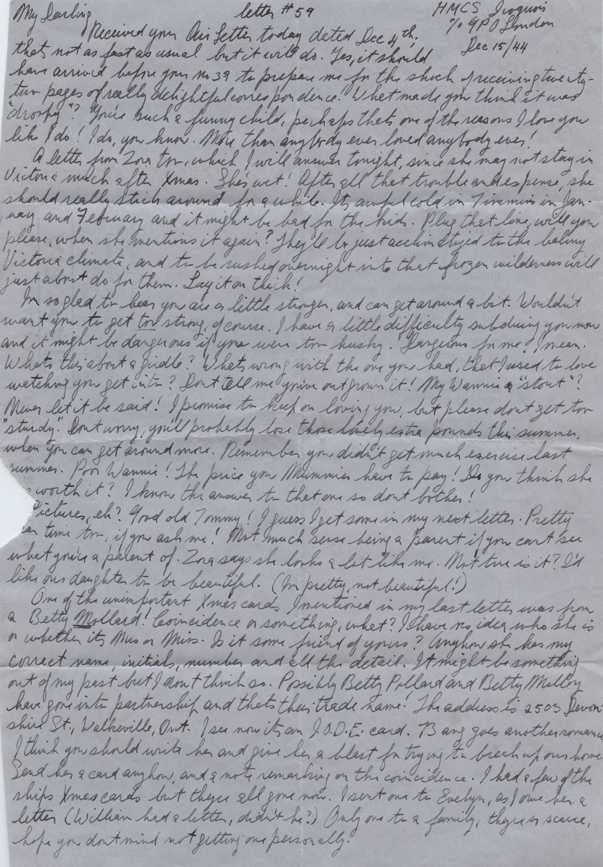 My Darling letter #59 HMCS Iroquois
℅ GPO London
Received your Air Letter today dated Dec 4th, Dec 15/44
thats not as fast as usual but it will do. Yes, it should
have arrived before your no 39 to prepare me for the shock of receiving twenty-
two pages of really delightful correspondence! What made you think it was
"droopy"? You're such a funny child, perhaps thats one of the reasons I love you
like I do! I do, you know. More than anybody ever loved anybody ever!
A letter from Zora too, which I will answer tonight, since she may not stay in
Victoria much after Xmas. She's wet! After all that trouble and expense, she
should really stick around for a while. Its awful cold in Timmins in Jan-
uary and February and it might be bad for the kids. Plug that line, will you
please, when she mentions it again? They'll be just acclimatized to the balmy
Victoria climate, and to be rushed overnight into that frozen wilderness will
just about do for them. Lay it on thick!
I'm so glad to hear you are a little stronger, and can get around a bit. Wouldn't
want you to get too strong, of course. I have a little difficulty subduing you now
and it might be dangerous if you were too husky. Dangerous for me, I mean.
Whats this about a girdle? Whats wrong with the one you had, that I used to love
watching you get into? Dont tell me you've outgrown it! My Wannie a "stout"?
Never let it be said! I promise to keep on loving you, but please dont get too
sturdy! Dont worry, you'll probably lose those lovely extra pounds this summer,
when you can get around more. Remember you didn't get much exercise last
summer. Poor Wannie! The price you Mummies have to pay! Do you think she
worth it? I know the answer to that one so dont bother!
Pictures, eh? Good old Tommy! I guess I get some in my next letter. Pretty
time too, if you ask me! Not much sense being a parent if you cant see
what you're a parent of. Zora says she looks a lot like me. Not true is it? I'd
like our daughter to be beautiful. (I'm pretty, not beautiful!)
One of the unimportant Xmas cards I mentioned in my last letter was from
a Betty Mollard! Coincidence or something, what? I have no idea who she is
or whether its Mrs or Miss. Is it some friend of yours? Anyhow she has my
correct name, initials, number and all the detail. It might be something
out of my past but I dont think so. Possibly Betty Pollard and Betty
have gone into partnership and thats their trade name. The address is 2503 Devon-
shire St, Walkerville, Ont. I see now its an I.O.D.E. card. Bang goes another romance
I think you should write her and give her a blast for trying to break up our home
Send her a card anyhow, and a note remarking on the coincidence. I had a few of the
ships Xmas cards but theyre all gone now. I sent one to Evelyn, as I owe her a
letter (William had a letter, didn't he?) Only one to a family, theyre so scarce,
hope you dont mind not getting one personally.